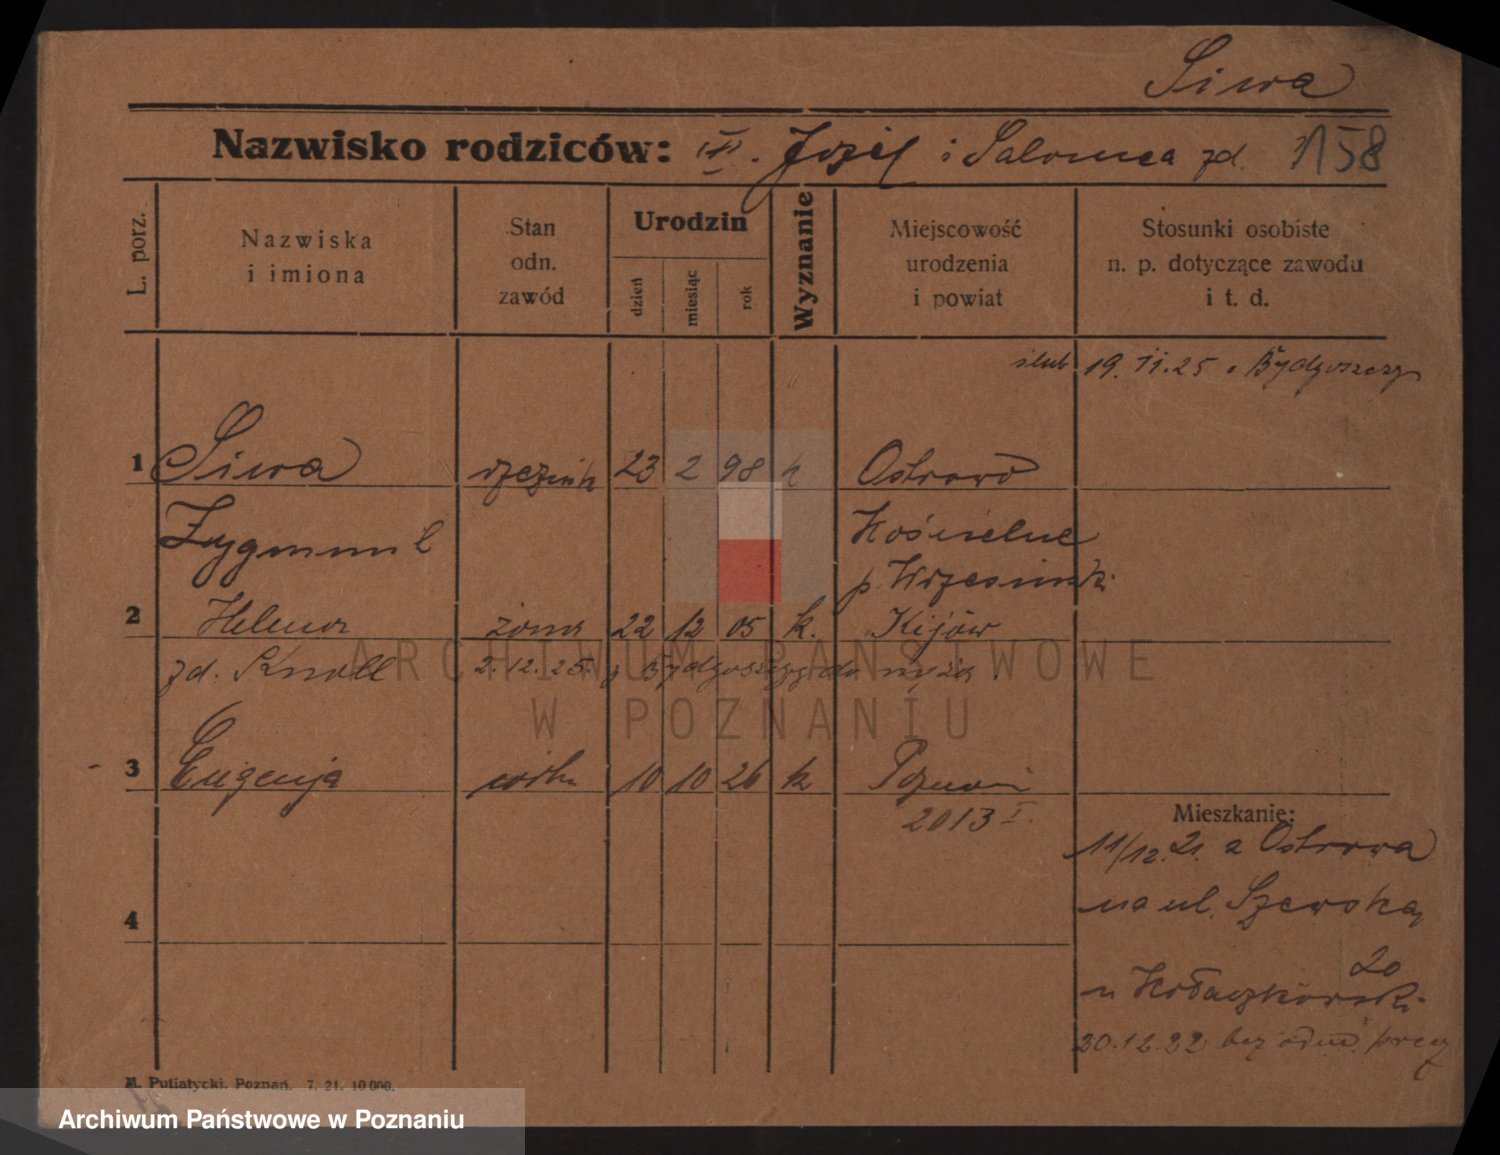 Siwa
Nazwisko rodziców: III. Józef i Salomea zd. 158
L. porz.
Nazwiska
i imiona
Stan
odn.
zawód
Urodzin
dzień
miesiąc
rok
Wyznanie
Miejscowość
urodzenia
i powiat
Stosunki osobiste
n. p. dotyczące zawodu
i t. d.
ślub 19.11.25 Bydgoszczy
1 Siwa rzeźnik 23 2 98 k Ostrowo
Zygmunt Kościelne
p. Wrzesiński
2 Helena żona 22 12 05 k. Kijów
zd. Knoll 2.12.25. z Bydgoszczy do męża.
3 Eugenja córka 10 10 26 k Poznań
2013 I.
Mieszkanie:
11/12. 21. z Ostrowa
na ul. Szewską
4
20
u Kołaczkowski
30.12.22 bez
M. Putiatycki, Poznań. 7. 21. 10 000.
ARCHIWUM PAŃSTWOWE
W POZNANIU
Archiwum Państwowe w Poznaniu